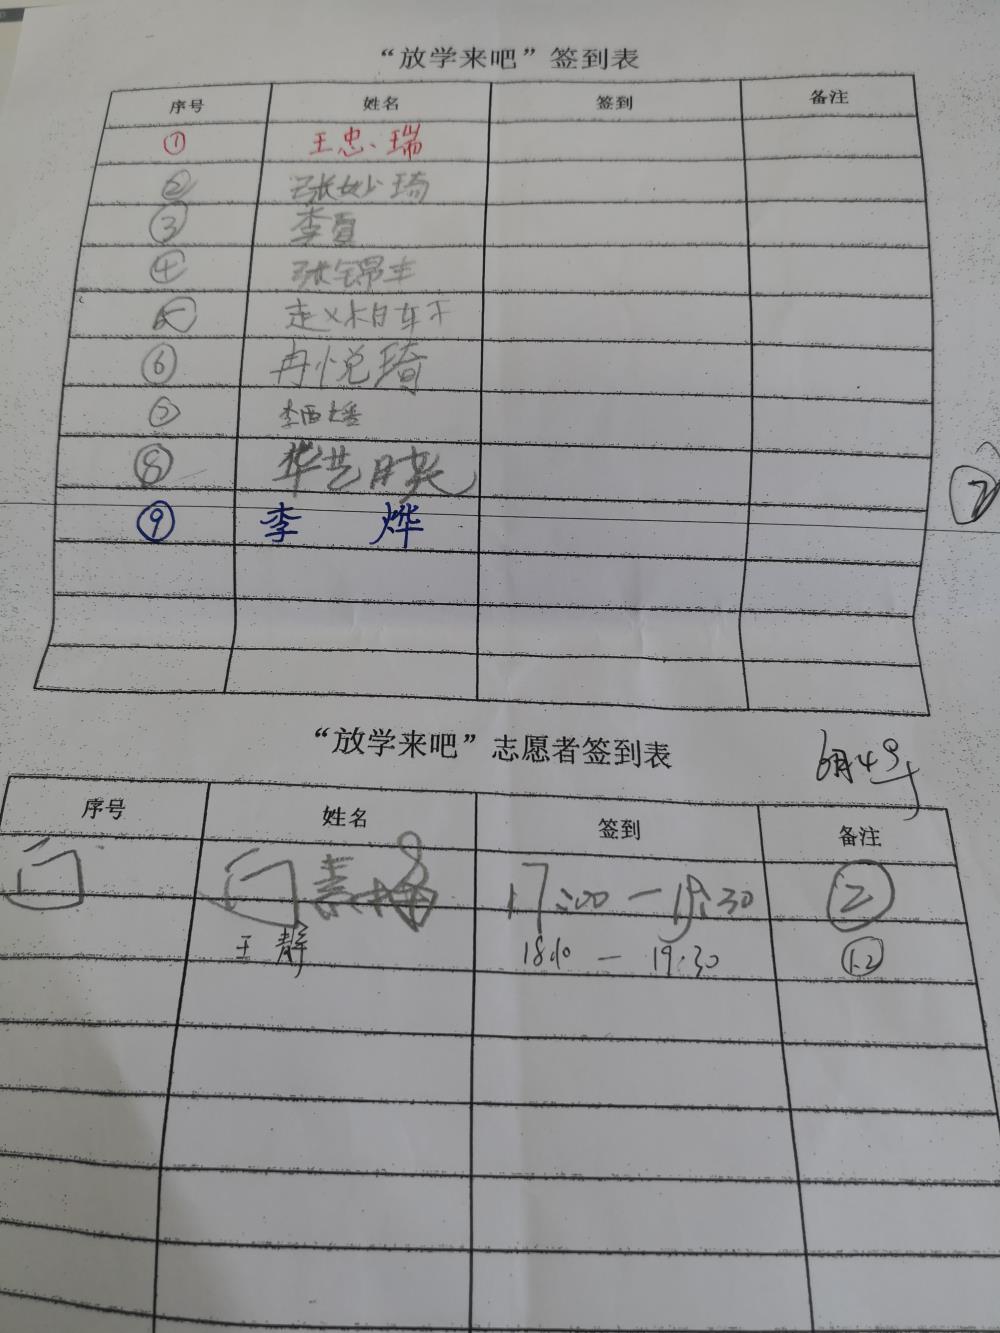 “放学来吧”签到表
序号 姓名 签到 备注
① 王忠瑞
② 张妙琦
③ 李夏
④ 张锦丰
⑤
⑥ 冉悦琦
⑦ 李西媛
⑧ 华艺
⑨ 李烨
②
“放学来吧”志愿者签到表
6月4号
序号 姓名 签到 备注
闫 17:00—19:30 ②
王静 18:10—19:30 1.2